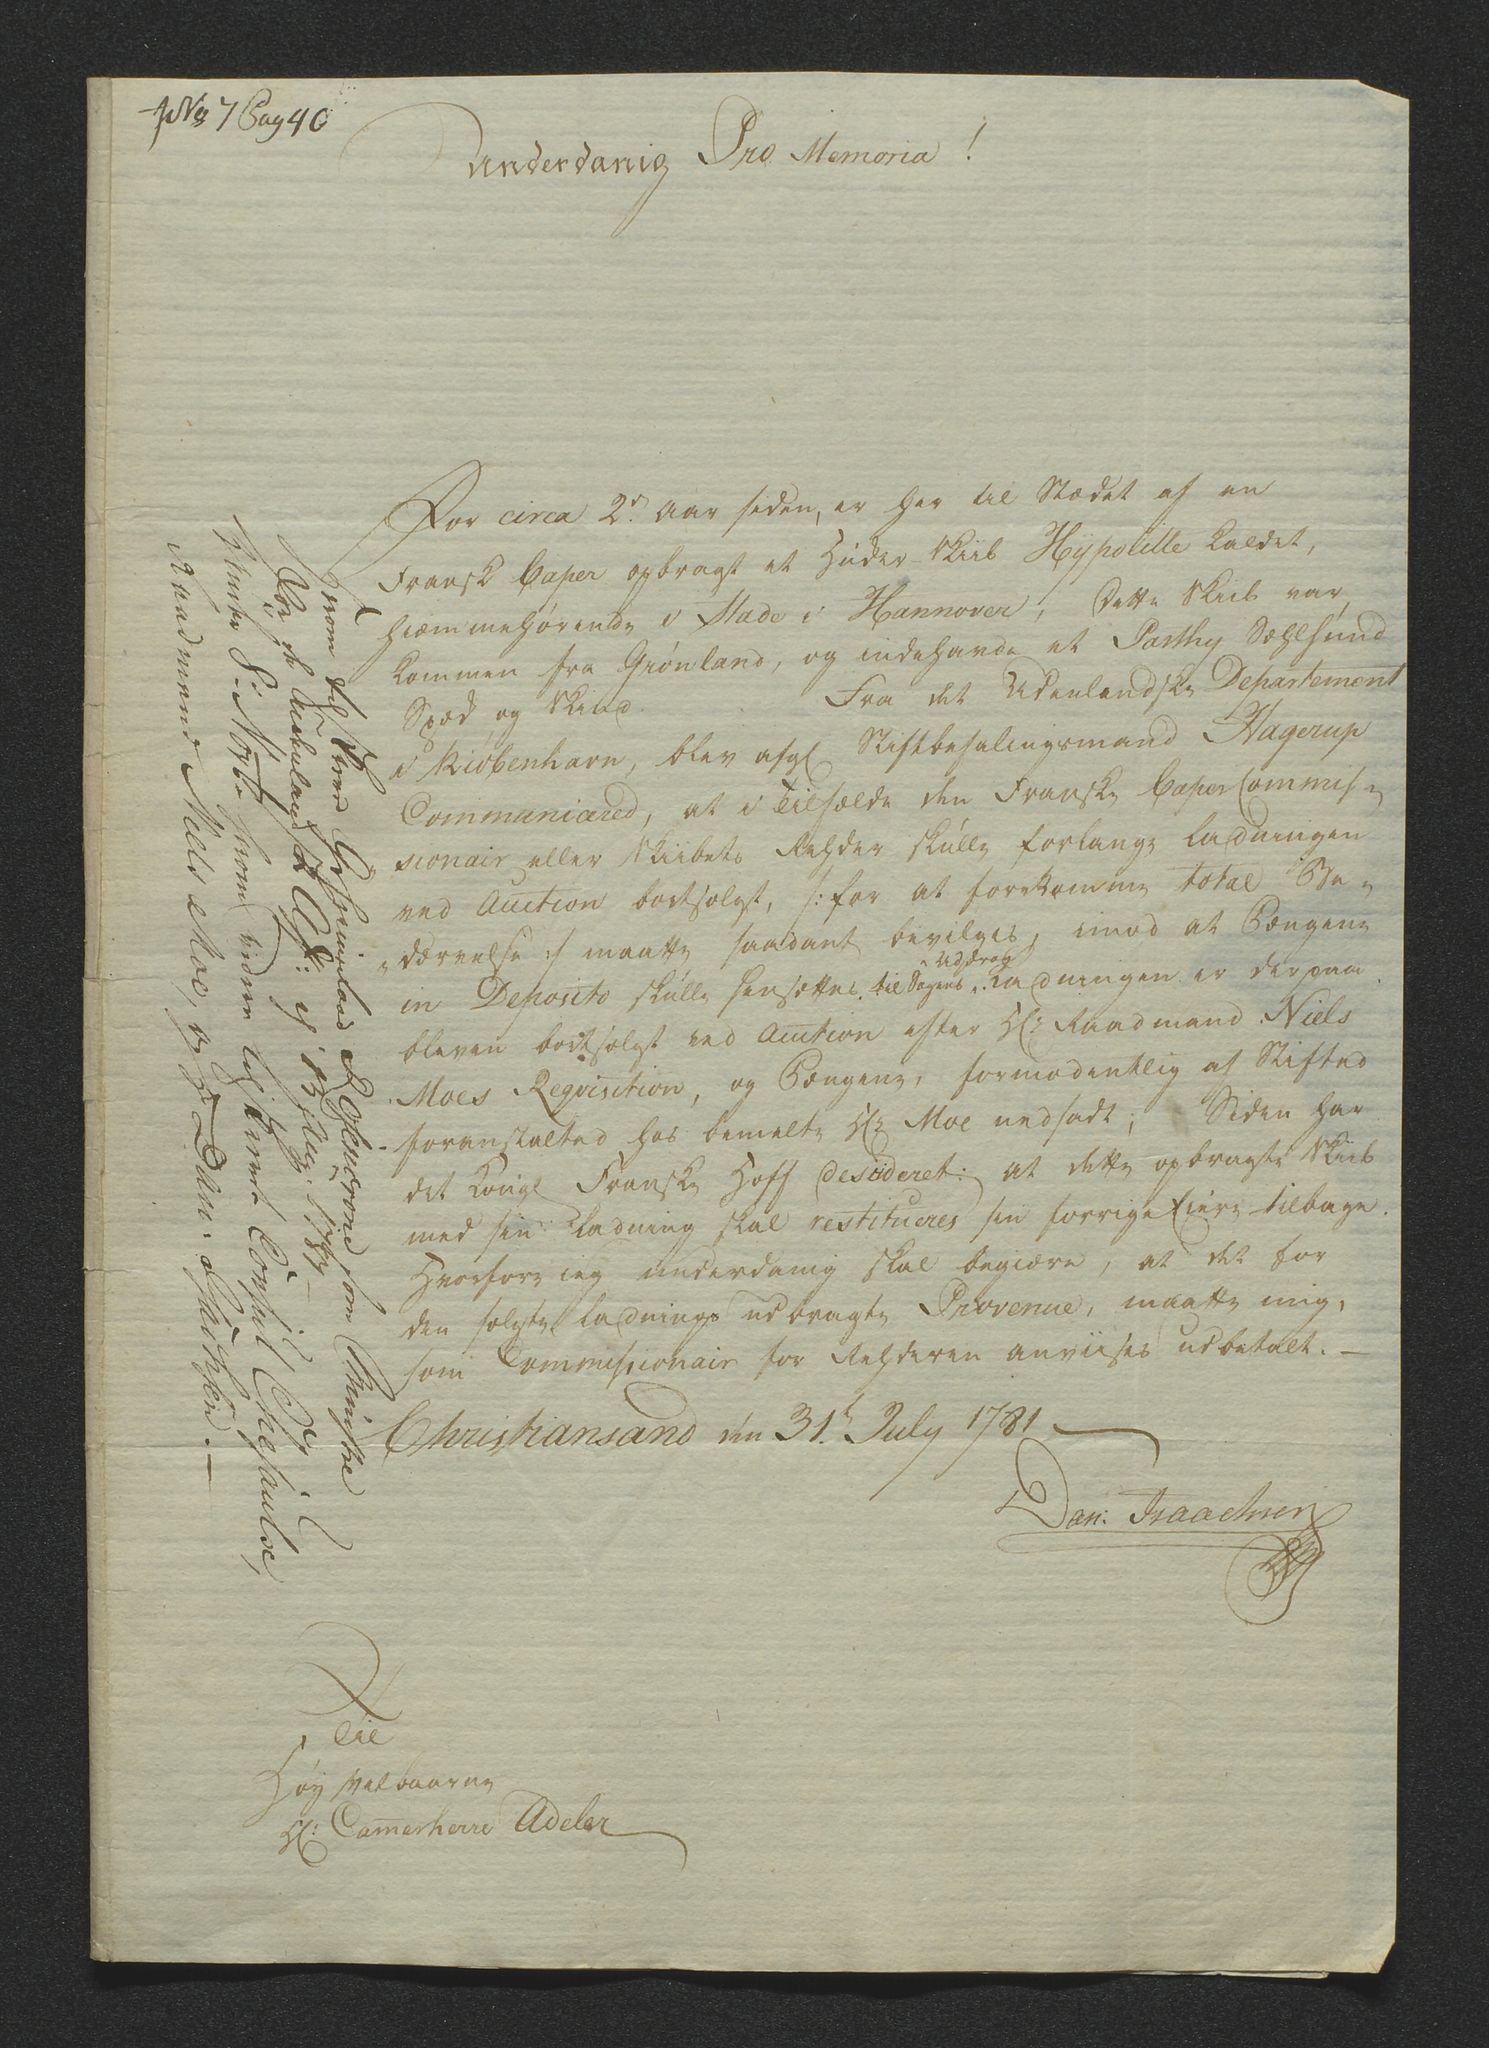 No 7 Pag 40
Underdanig Pro Memoria!
For circa 2de Aar siden, er her til Stædet af en
Fransk Caper opbragt et Huder-Skiib Hÿpolitte kaldet,
hiemmehørende i Stade i Hannover, dette Skiib var
kommen fra Grønland, og indehavde et Parthy Sælhund
Spæd og Skind. Fra det Udenlandske Departement
i Kiøbenhavn, blev afg: Stiftbefalingsmand Hagerup
Communiceret, at i Tilfælde den Franske Caper Commis-
sionair eller Skibets Rehder skulle forlange Ladningen
ved Auction bortsolgt, /: for at forekomme total Be-
dærvelse :/ maatte saadant bevilges, imod at Pengene
in Deposito skulle hensættes til Sagens Uddrag. Ladningen er derpaa
bleven bortsolgt ved Auction efter Hr: Raadmand Niels
Moes Reqvisition, og Pengene, formodentlig af Stiftet
foranstaltet hos bemelte Hr: Moe nedsadt; Siden har
det Kongl: Franske Hoff desideret: at dette opbragte Skiib
med sin Ladning skal restitueres sin forrige Eiere tilbage.
Hvorfore ieg underdanig skal begiære, at det for
den solgte Ladnings udbragte Provenue, maatte mig,
som Commissionair for Rehderen anviises udbetalt. —
Christiansand den 31te July 1781
Dan: Isaachsen
Til
Høy Velbaarne
Hr: Camerherre Adeler
Raadmand Niels Moe, og Dan: Isaachsen. —